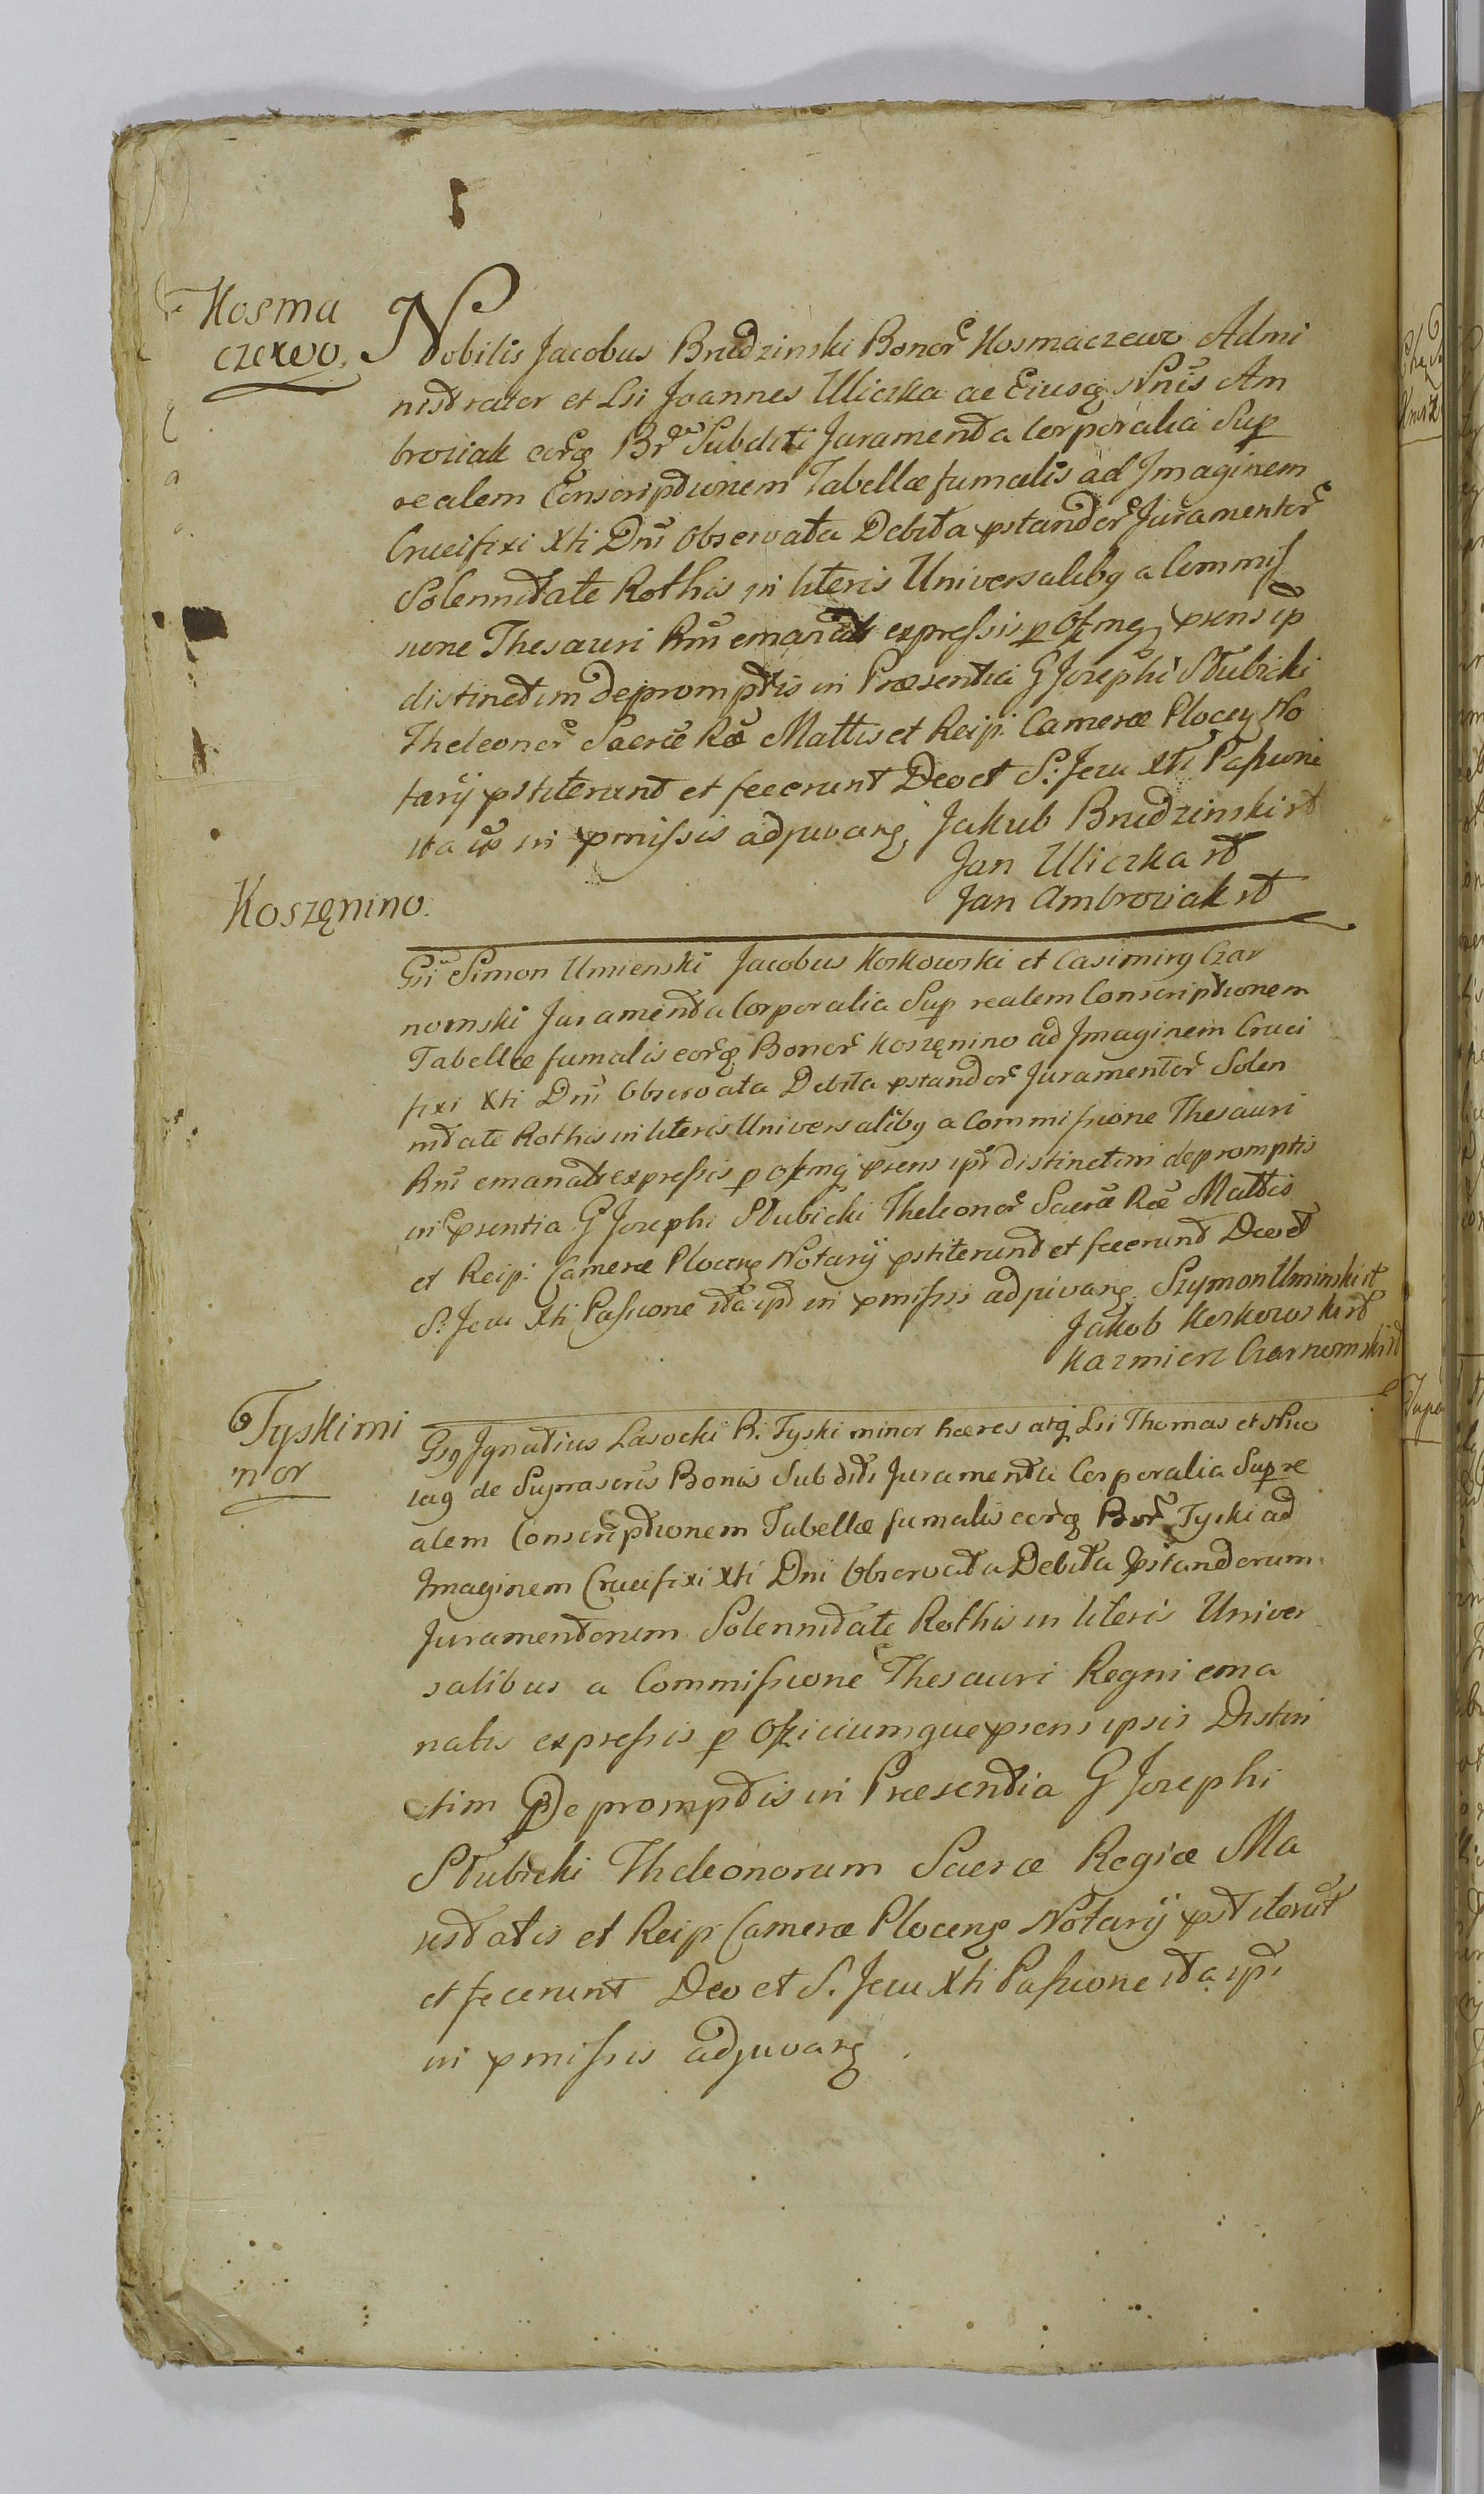 Kosma
czewo.
Nobilis Jacobus Brudzinski Bonor̃ Kosmaczewo Admi
nistrator et Lri Joannes Uliczka ac Eiusq̃ Nnis Am
broziak eorq̃ Br̃ Subditi Juramenta Corporalia Sup
realem Conscriptionem Tabellæ fumalis ad Jmaginem
Crucifixi Xti Dni Observata Debita pstandor̃ Juramentor̃
Solennitate Rothis in literis Universaliby a Commis
sione Thesauri Rni emanatis expressis p Offmq psens ip
distinctim depromptis in Præsentia G Josephi Słubicki
Theleonor̃ Sacræ Ræ Mattis et Reip. Cameræ Plocen No
tarij pstiterunt et fecerunt Deo et S: Jesu Xti Passione
ita ips in pmissis adjuvang. Jakub Brudzinski st
Jan Uliczka st
Jan Ambroziak st
Koszęnino.
Gsi Simon Umienski Jacobus Koskowski et Casimiry Czar
nomski Juramenta Corporalia Sup realem Conscriptionem
Tabellæ fumalis eorq̃ Bonor̃ Koszęnino ad Jmaginem Cruci
fixi Xti Dni Observata Debita pstandor̃ Juramentor̃ Solen
nitate Rothis in literis Universaliby a Commissione Thesauri
Rni emanatis expressis p Offmq psens ipi distinctim depromptis
in psentia G Josephi Słubicki Theleonor̃ Sacræ Ræ Mattis
et Reip. Cameræ Plocens Notarij pstiterunt et fecerunt Deo et
S. Jesu Xti Passione ita ips in pmissis adjuvang. Szymon Uminski st
Jakob Koskowski st
Kazmierz Czarnomski st
Tyski mi
nor
Gsy Jgnatius Lasocki B. Tyski minor hæres atq Lri Thomas et
de Suprascris Bonis Subditi Juramenta Corporalia Sup re
alem Conscriptionem Tabellæ fumalis eorq̃ Bor̃ Tyski ad
Jmaginem Crucifixi Xti Dni Observata Debita pstandorum
Juramentorum Solennitate Rothis in literis Univer
salibus a Commissione Thesauri Regni ema
natis expressis p Officiumque psens ipsis Distin
ctim Depromptis in Præsentia G Josephi
Słubicki Theleonorum Sacræ Regiæ Ma
iestatis et Reip Cameræ Plocens Notarij pstiterut
et fecerunt Deo et S. Jesu Xti Passione ita ips
in pmissis adjuvang.